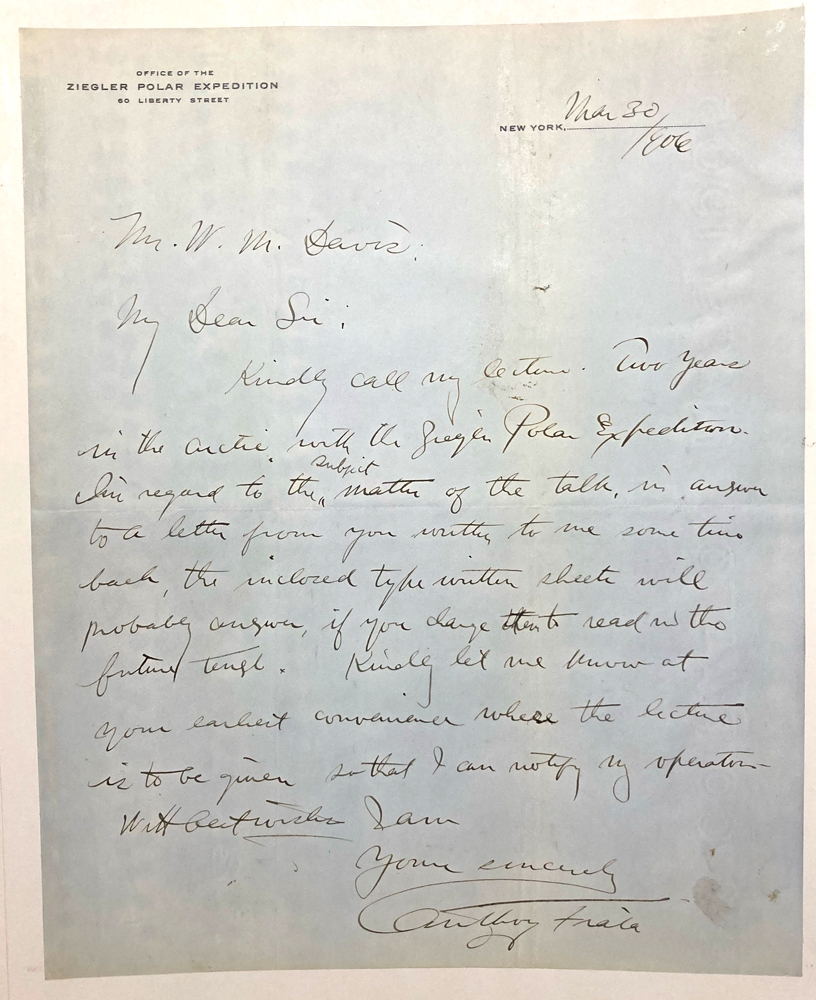 OFFICE OF THE
ZIEGLER POLAR EXPEDITION
60 LIBERTY STREET
NEW YORK, Mar 30
1906
Mr. W. M. Davis:
My Dear Sir:
Kindly call my lecture. Two Years
in the arctic with the Ziegler Polar Expedition.
In regard to the subject matter of the talk, in answer
to a letter from you written to me some time
back, the inclosed type written sheets will
probably answer, if you change to read in the
future tense. Kindly let me know at
your earliest convenience where the lecture
is to be given so that I can notify my operator
With best wishes I am
Yours sincerely
Anthony Fiala